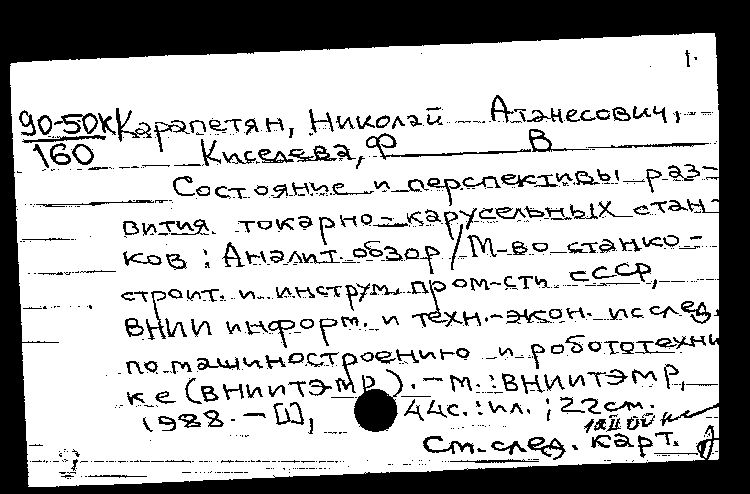 1.
90-50к Карапетян, Николай Атанесович,
160 Киселева, Ф В
Состояние и перспективы раз-
вития токарно-карусельных стан-
ков : Аналит. обзор / М-во станко-
строит. и инструм. пром-сти СССР,
ВНИИ информ. и техн.-экон. исслед.
по машиностроению и робототехни
ке (ВНИИТЭМР). – М. : ВНИИТЭМР,
1988. – [1], 44с. : ил. ; 22см.
См. след. карт.